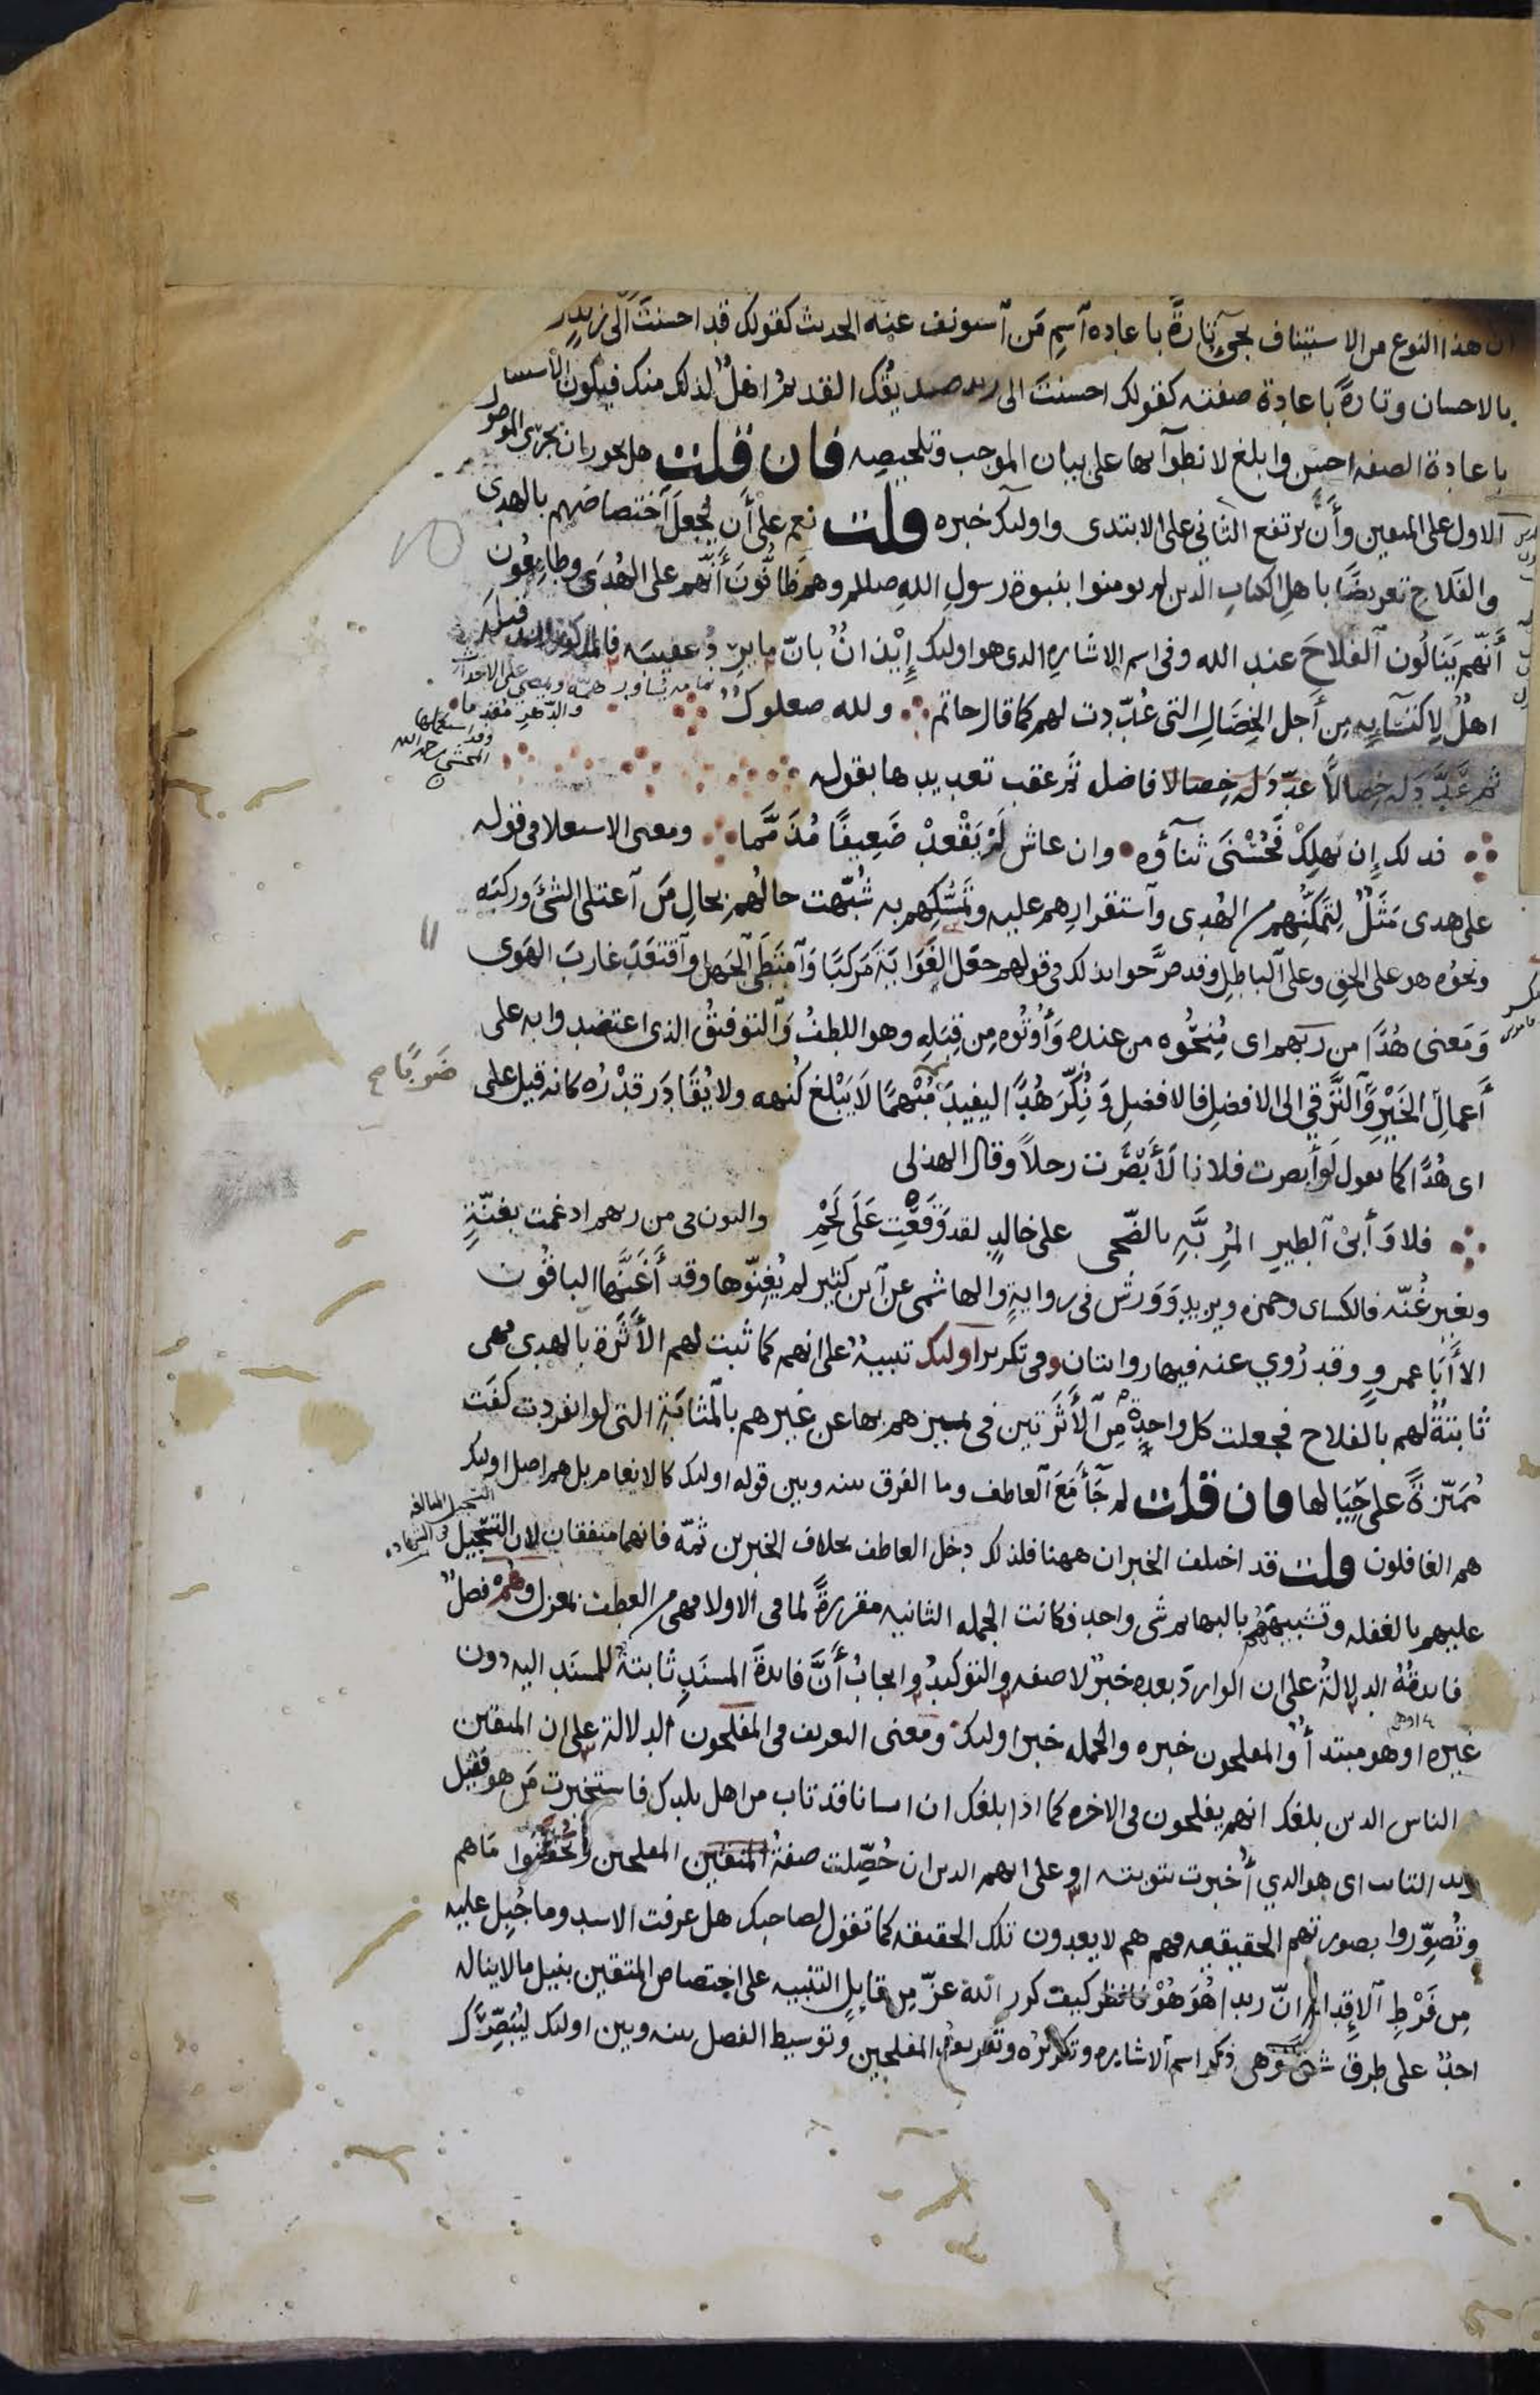 ان هذا النوع من الاستئناف يجيء تارةً باعاده آسمِ مَن آستونف عنه الحديث كقولك قد احسنتَ الى زيدٍ زيدٌ
بالاحسان وتارةً باعادة صفته كقولك احسنتَ الى زيد صديقُك القديمُ اهلٌ لذلك منك فيكون الاستئناف
باعادة الصفه احسن وابلغ لانطوآئها على بيان الموجب وتلخيصِه فان قلت هل يجوز ان يجري الموصول
الاول على المتقين وأنَّ يرتفع الثاني على الابتدى واولئك خبره قلت نعم على أن يُجعلَ آختصاصُهم بالهدى
والفَلاح تعريضًا باهلِ الكتابِ الذين لم يومنوا بنبوة رسولِ اللهِ صللم وهم ظانُّونَ أنَّهم على الهُدَى وطامِعُون
أنَّهم يَنَالُون آلفلاحَ عند الله وفى اسم الاشاره الذي هو اولئك إِيْذانٌ بانّ ما يرِدُ عقيبَه فالمذكورون قبلَه
اهلٌ لِاكتسَآبِه مِن أَجل الخِصَالِ التى عُدّدت لهم كما قال حاتم ولله صعلوكٌ
يُساور همّه ويمضي على الاحداث والدّهرِ مُقدِما
ثم عَدَّدَ له خِصالاً عدّدَ له خِصالا فاضله ثم عقب تعديدها بقوله
فذلك إن يَهلِكْ فَحُسْنَى ثنآؤُه وان عاش لَمْ يَقْعدْ ضَعِيفًا مُذَمَّما ومعنى الاستعلا في قوله
على هدى مَثَلٌ لِتَمَكُّنِهم من الهُدى وآستقرارِهم عليه وتَمَسُّكِهم به شُبّهت حالُهم بحالِ مَن آعتلى الشئَ وركبَه
ونحوُه هو على الحقِ وعلى آلباطِلِ وقد صرَّحوا بذلك في قولهم جعَل الغَوَايَةَ مَركبًا وَآمتَطَى آلجَهلَ وآقتَعَدَ غاربَ الهَوى
وَمَعنى هُدًا من ربهم اى مُنِحُوه من عنده وَأُوتُوه مِن قِبَلِه وهو اللطفُ وَآلتوفيقُ الذى اعتضدوا به على
أَعمالِ الخَيْرِ وَآلتَّرَقي الى الافضلِ فالافضلِ وَنُكِّرَ هُدًا ليفيدَ مُبْهَمًا لَا يَبْلغ كُنهه ولا يُقَادَر قدْرُه كانه قيل على
ضَرْبًا صح
اى هُدًا كما تقول لَو أبصرت فلانا لَأَبْصَرْت رجلاً وقال الهذلى
فلا وَأَبي آلطيرِ المُرِبَّهِ بالضّحى على خالدٍ لقد وَقَعْتِ عَلَى لَحْمِ والنون فى من ربهم ادغمت بغنّةٍ
وبغير غُنّه فالكساى وحمزه ويزيد وَوَرش فى روايةٍ والهاشمى عن آبن كثير لم يُغِنّوها وقد أَغَنَّها الباقُون
الا أَبَا عمروٍ وقد رُوي عنه فيها روايتان وفى تكرير اولئك تنبيهٌ على انهم كما ثبت لهم الأَثَرَة بالهدى فهى
ثَابتةٌ لهم بالفلاح فجعلت كل واحدةٍ مِن آلأَثَرَتين فى تمييزهم بها عن غيرهم بالمَثابَةِ التى لو انفردت كفَت
مُمَيّزةً على حِيَالها فان قلت لم جَآءَ مَعَ آلعاطف وما الفرق بينه وبين قوله اولئك كالانعام بل هم اضل اولئك
هم الغافلون قلت قد اختلف الخبران ههنا فلذلك دخل العاطف بخلاف الخبرين ثمّه فانهما متفقان لان التسجيل
عليهم بالغفله وتشبيهَهُم بالبهايم شى واحد فكانت الجمله الثانيه مقررةً لما فى الاولا فهى من العطف بمعزل وهُمْ فصلٌ
فايدتُه الدلالةُ على ان الواردَ بعده خبرٌ لا صفه والتوكيدُ وايجابُ أنَّ فايدةَ المسنَدِ ثابتةٌ للمسنَد اليه دون
غيره او هو مبتدأٌ والمفلحون خبره والجمله خبر اولئك ومعنى التعريف فى المفلحون الدلالة على ان المتقين
الناس الذين بلغك انهم يفلحون فى الاخره كما اذا بلغك ان انسانا قد تاب من اهل بلدك فاستخبرت مَن هو فقيل
زيد التايب اى هو الذي أُخبرت بتوبته او على انهم الذين ان حُصِّلت صفةُ المفلحين وتُحُقِّقُوا مَا هم
وتُصِوّروا بصورتهم الحقيقيه فهم هم لا يعدون تلك الحقيقه كما تقول لصاحبك هل عرفت الاسد وما جُبِل عليه
مِن فَرْطِ آلاِقِدام انّ زيدا هُوَ هُوْ فانظر كيف كرر الله عزّ مِن قايلٍ التنبيه على اختصاص المتقين بنيل ما لا يناله
احدٌ على طرق شتى وَهى ذكر اسم آلاشاره وتكريره وتعريف المفلحين وتوسيط الفصل بينه وبين اولئك ليُبَصِّرَك